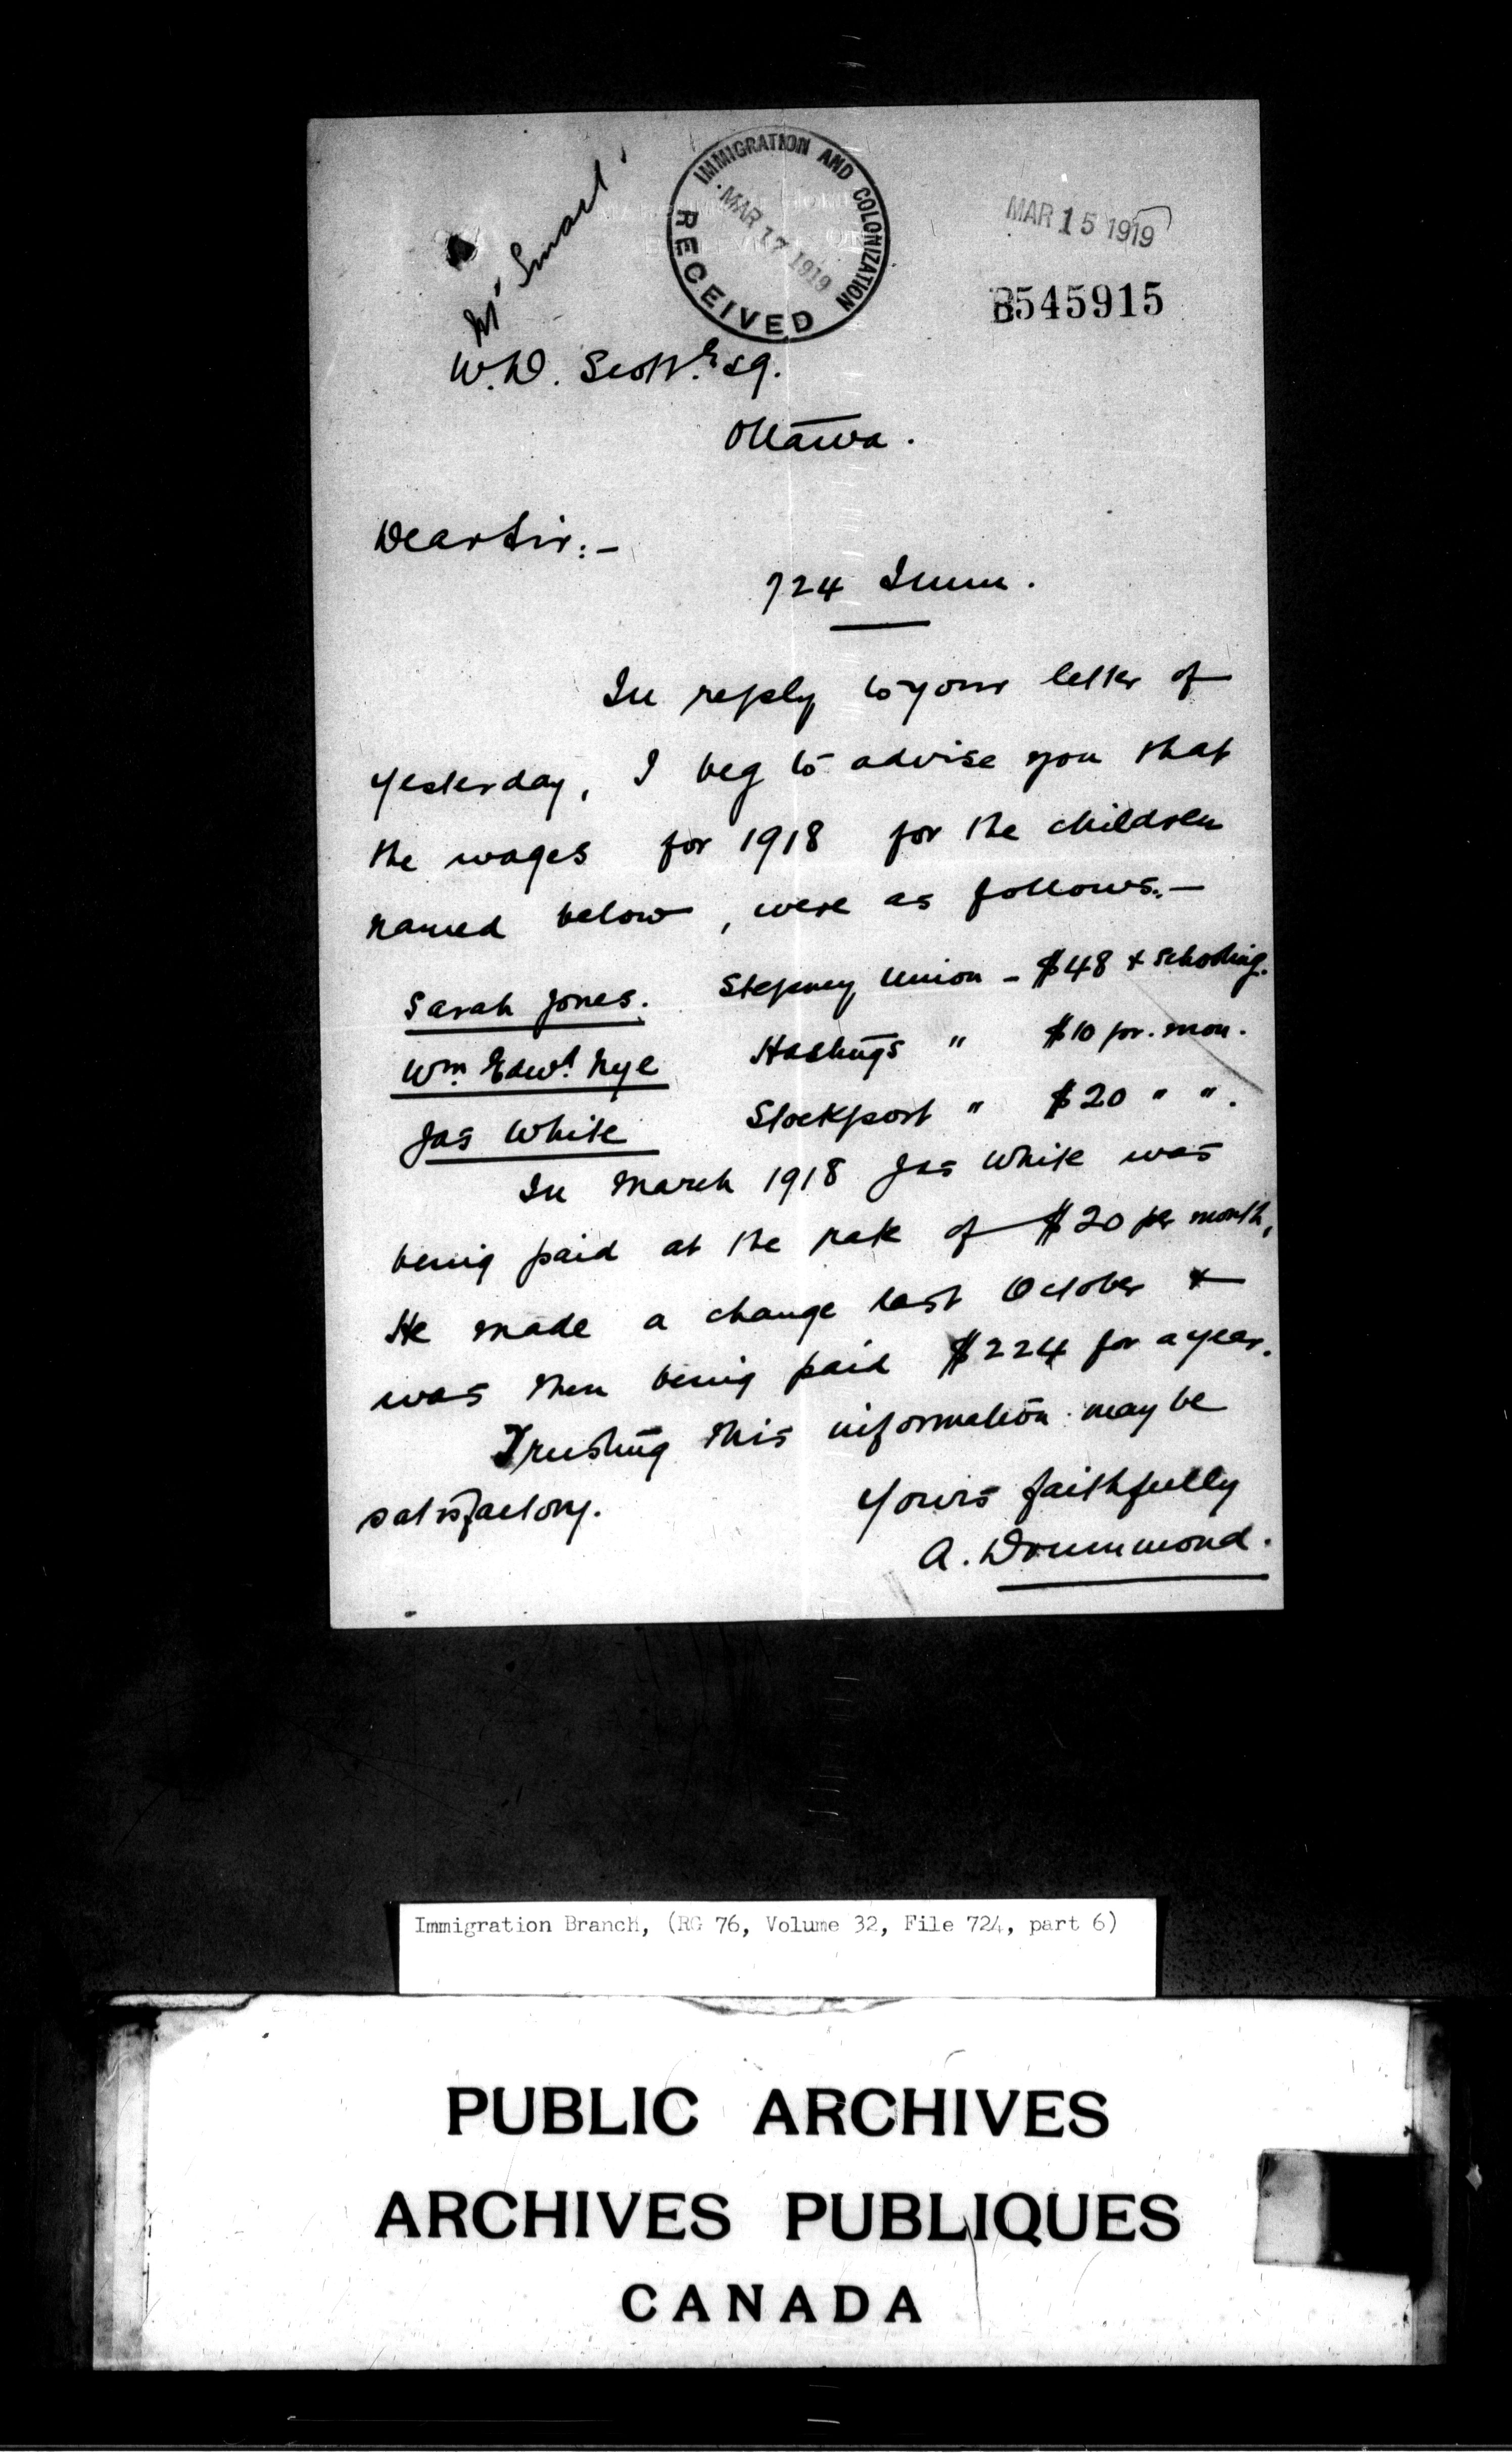 IMMIGRATION AND COLONIZATION
MAR 17 1919
RECEIVED
MAR 15 1919
B545915
Mr Smart
W.D. Scott. Esq.
Ottawa.
Dear Sir:-
724 Imm.
In reply to your letter of
yesterday, I beg to advise you that
the wages for 1918 for the children
named below, were as follows:-
Sarah Jones. Stepney Union - $48 & schooling.
Wm. Edwd. Nye Hastings " $10 pr. mon.
Jas White Stockport " $20 " ".
In March 1918 Jas White was
being paid at the rate of $20 per month,
He made a change last October &
was then being paid $224 for a year.
Trusting this information may be
satisfactory.
Yours faithfully
A. Drummond.
Immigration Branch, (RG 76, Volume 32, File 724, part 6)
PUBLIC ARCHIVES
ARCHIVES PUBLIQUES
CANADA